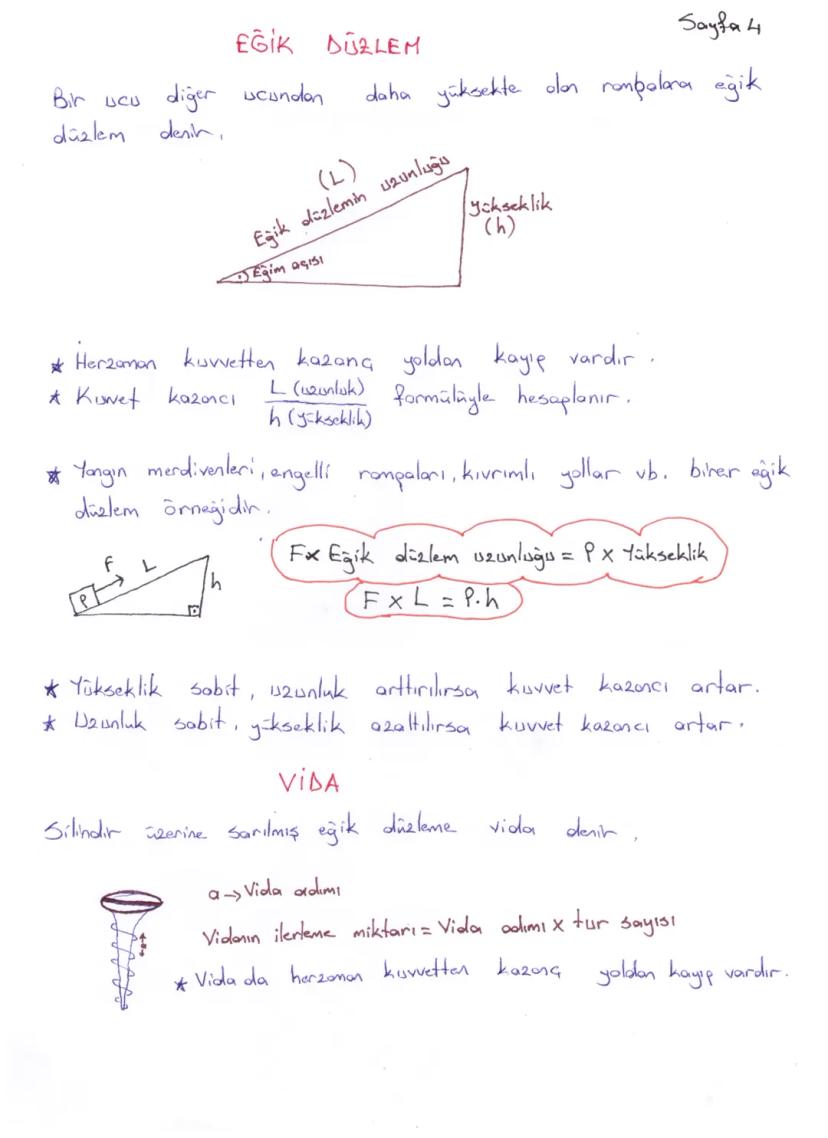 Sayfa 4
EĞİK DÜZLEM
Bir ucu diğer ucundan daha yüksekte olan rampalara eğik
düzlem denir.
(L)
Eğik düzlemin uzunluğu
yükseklik
(h)
Eğim açısı
★ Herzaman kuvvetten kazanç yoldan kayıp vardır.
★ Kuvvet kazancı L (uzunluk) / h (yükseklik) formülüyle hesaplanır.
★ Yangın merdivenleri, engelli rampaları, kıvrımlı yollar vb. birer eğik
düzlem örneğidir.
F x Eğik düzlem uzunluğu = P x Yükseklik
F x L = P.h
F L
P
h
★ Yükseklik sabit, uzunluk arttırılırsa kuvvet kazancı artar.
★ Uzunluk sabit, yükseklik azaltılırsa kuvvet kazancı artar.
VİDA
Silindir üzerine sarılmış eğik düzleme vida denir.
a → Vida adımı
Vidanın ilerleme miktarı = Vida adımı x tur sayısı
a
★ Vida da herzaman kuvvetten kazanç yoldan kayıp vardır.